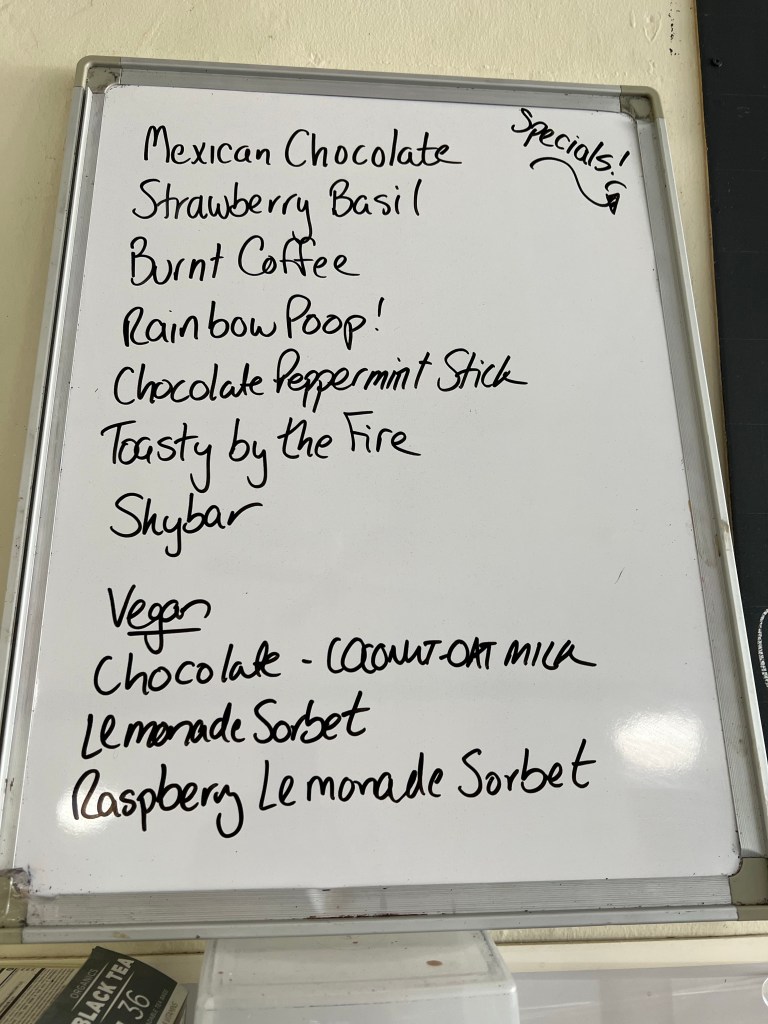 Specials!
Mexican Chocolate
Strawberry Basil
Burnt Coffee
Rainbow Poop!
Chocolate Peppermint Stick
Toasty by the Fire
Skybar
Vegan
Chocolate - COCONUT-OAT MILK
Lemonade Sorbet
Raspberry Lemonade Sorbet
ORGANIC
BLACK TEA
36